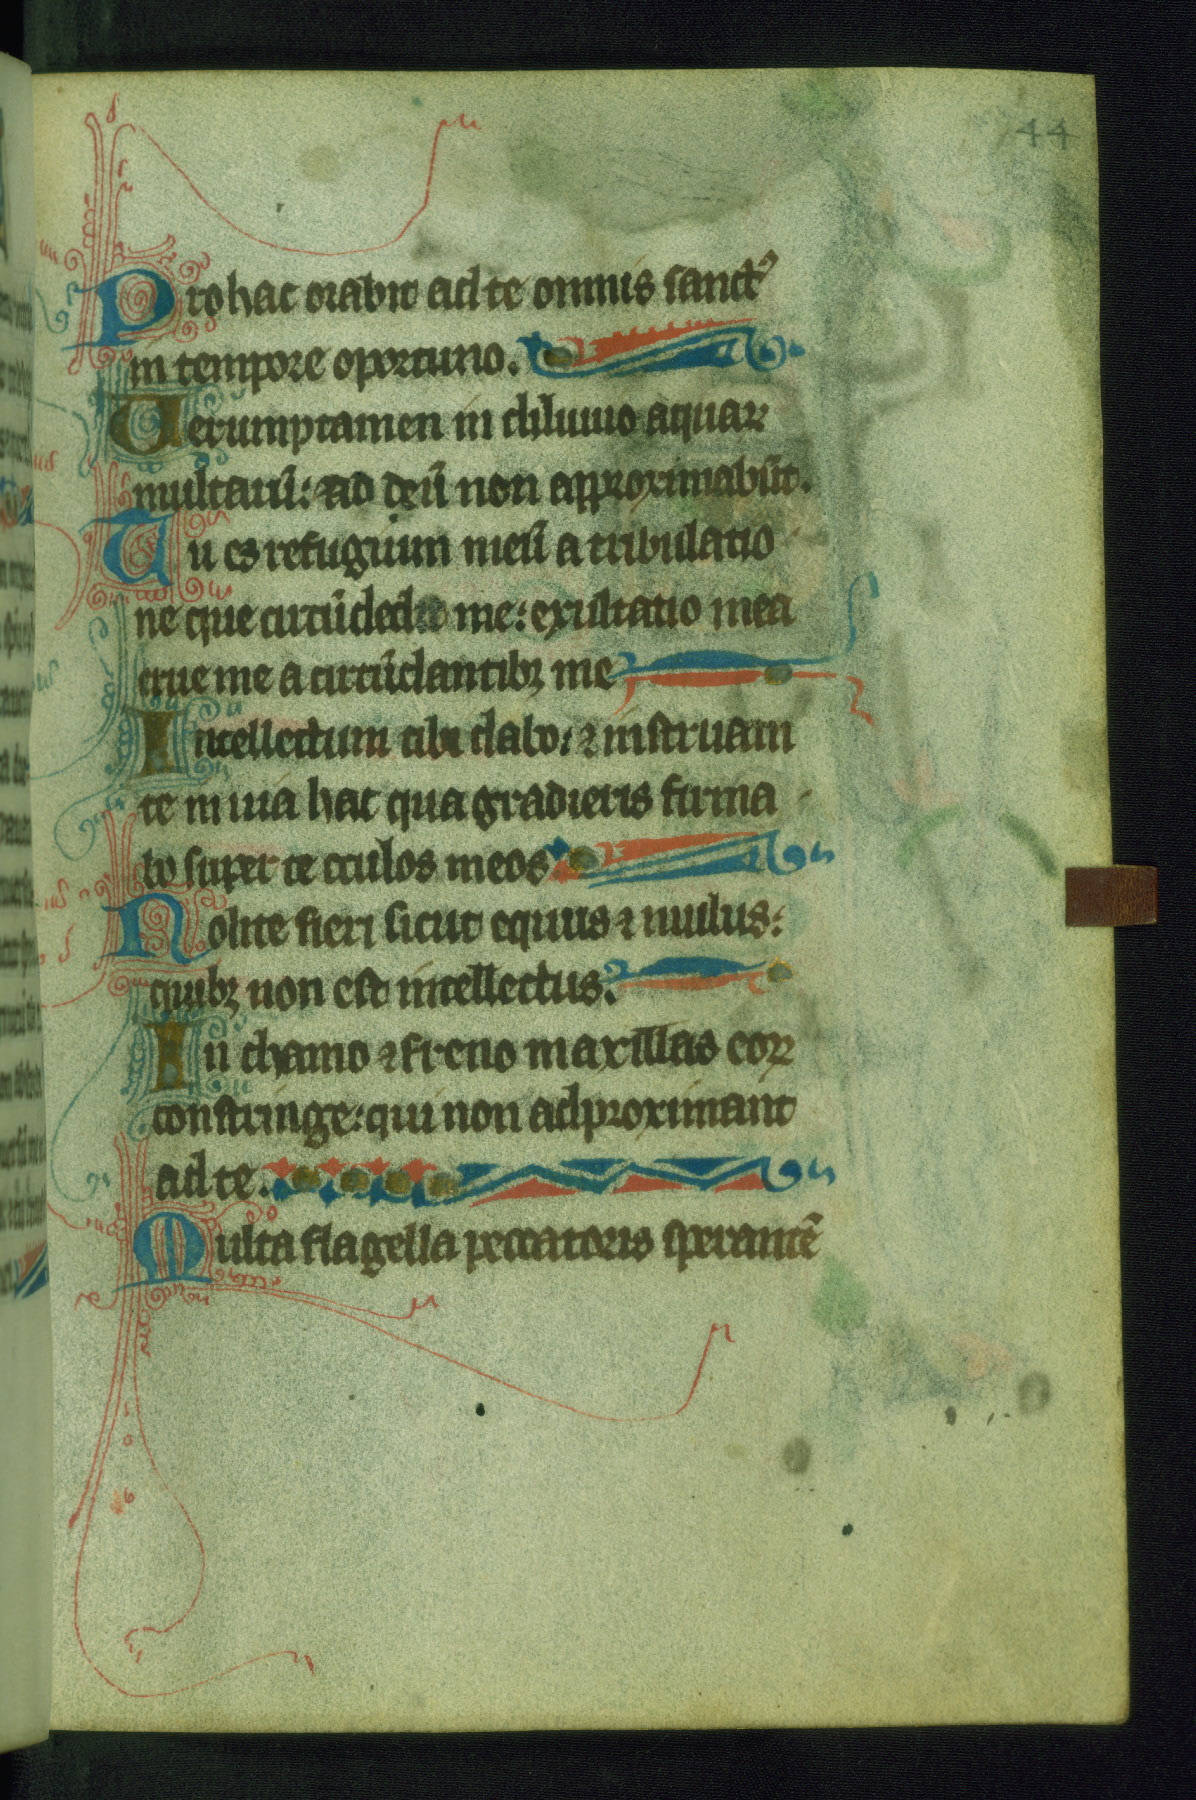 44
Pro hac orabit ad te omnis sanctꝰ
in tempore oportuno.
Uerumptamen in diluuio aquaꝝ
multarū: ad deū non approximabūt.
Tu es refugium meū a tribulatio
ne que circūdedit me: exultatio mea
erue me a circūdantibꝫ me
Intellectum tibi dabo: ⁊ instruam
te in uia hac qua gradieris firma
bo super te oculos meos
Nolite fieri sicut equus ⁊ mulus:
quibꝫ non est intellectus.
In chamo ⁊ freno maxillas eoꝝ
constringe: qui non adproximant
ad te.
Multa flagella peccatoris sperantē